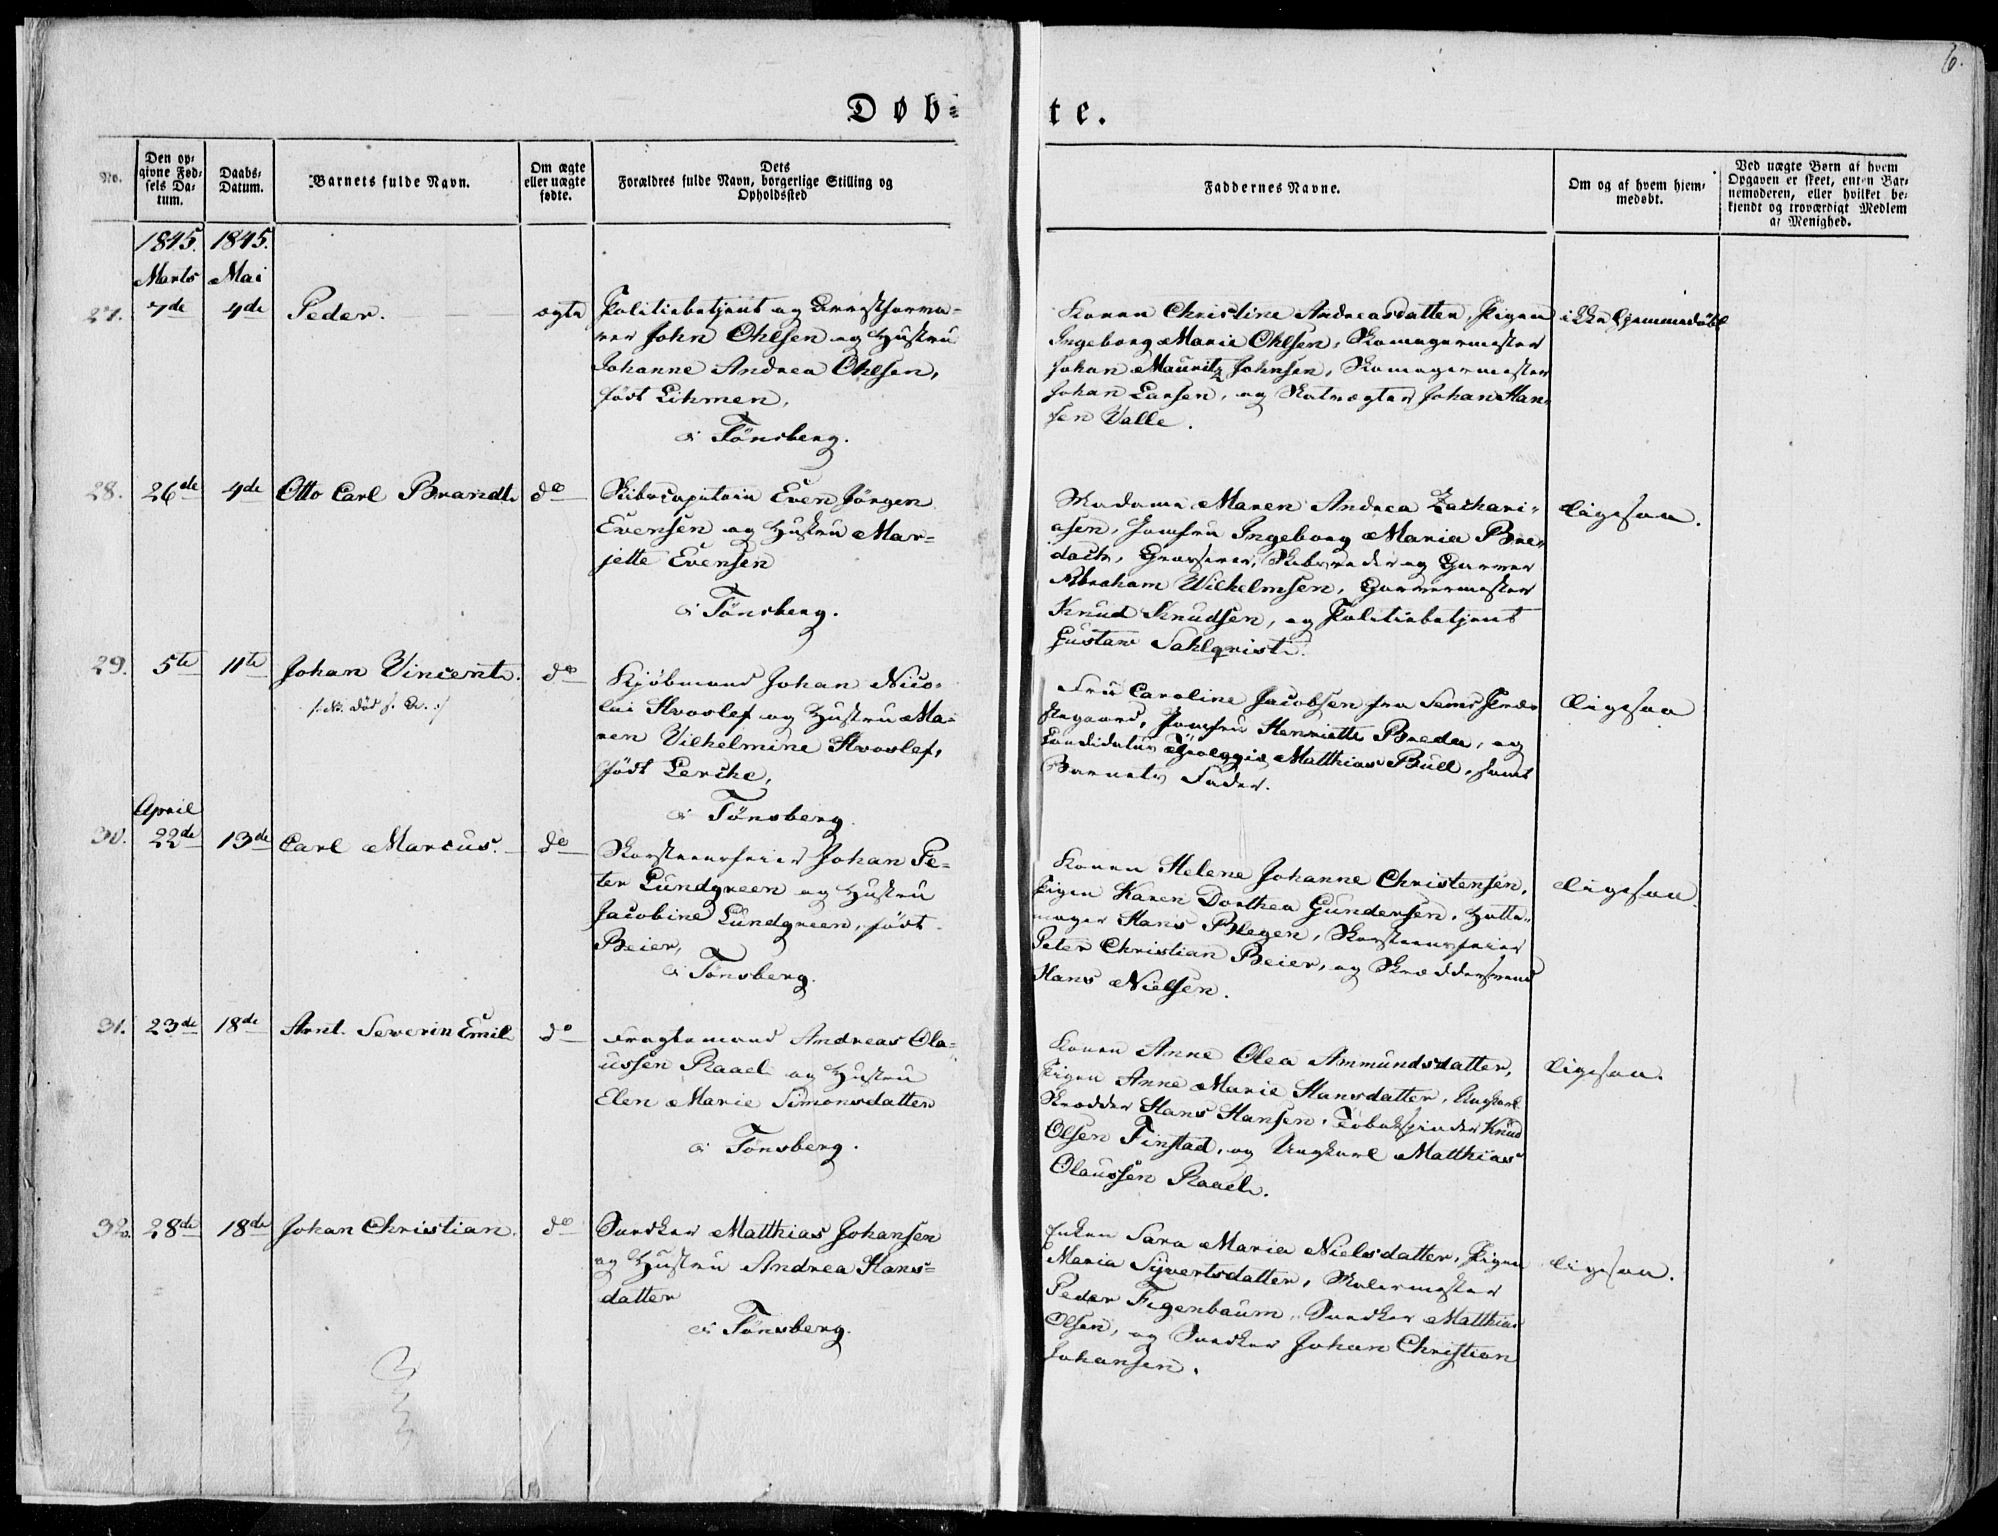 6.
Døb= te.
No.
Den op-
givne Fød-
sels Da-
tum.
Daabs-
Datum.
Barnets fulde Navn.
Om ægte
eller uægte
fødte.
Dets
Forældres fulde Navn, borgerlige Stilling og
Opholdssted
Faddernes Navne.
Om og af hvem hjem-
medøbt.
Ved uægte Børn af hvem
Opgaven er skeet, enten Bar-
nemoderen, eller hvilket be-
kjendt og troværdigt Medlem
af Menighed.
1845. 1845.
Marts Mai
27. 7de 4de Peder. ægte
Politiebetjent og Arrestforva-
rer John Ohlsen og Hustru
Johanne Andrea Ohlsen,
født Lihmen,
i Tönsberg.
Konen Christine Andreasdatter, Pigen
Ingeborg Marie Ohlsen, Skomagermester
Johan Mauritz Johnsen, Skomagermester
Johan Larsen, og Johan Han-
sen Valle.
ikke hjemmedöbt
28. 26de 4de Otto Carl Brandt. do
Skibscapitain Even Jörgen
Evensen og Hustru Mar-
jette Evensen
i Tönsberg.
Madame Maren Andrea Zachari-
asen, Jomfru Ingeborg Maria Bre-
dach, Grosserer, Skibsreder og Garver
Abraham Wilhelmsen, Garvermester
Knud Knudsen, og Politiebetjent
Gustav Sahlqvist.
ligesaa.
29. 5te 11te Johan Vincent. do
Kjöbmand Johan Nico-
lai Hvoslef og Hustru Ma-
ren Vilhelmine Hvoslef,
født Lerche,
i Tönsberg
Fru Caroline Jacobsen fra Sems Præs-
tegaard, Jomfru Henriette Breda, og
Candidatus Matthias Bull, samt
Barnets Fader.
ligesaa
April
30. 22de 13de Carl Marcus. do
Skorsteensfeier Johan Pe-
ter Lundgreen og Hustru
Jacobine Lundgreen, født
Beier,
i Tönsberg.
Konen Helene Johanne Christensen,
Pigen Karen Dorthea Gundersen, Hatte-
mager Hans Blegen, Skorsteensfeier
Peter Christian Beier, og Skræddersvend
Hans Nielsen.
ligesaa.
31. 23de 18de Arnt Severin Emil do
Fragtemand Andreas Ola-
ussen Raael og Hustru
Elen Marie Simonsdatter
i Tönsberg.
Konen Anne Olea Ammundsdatter,
Pigen Anne Marie Hansdatter, Ungkarl
Skrædder Hans Hansen, Tobakspinder Knud
Olsen Finstad, og Ungkarl Matthias
Olaussen Raael.
ligesaa.
32. 28de 18de Johan Christian. do
Snedker Matthias Johansen
og Hustru Andrea Hans-
datter
i Tönsberg.
Enken Sara Maria Nielsdatter, Pigen
Maria Syvertsdatter, Malermester
Peder Figenbaum, Snedker Matthias
Olsen, og Snedker Johan Christian
Johansen.
ligesaa.